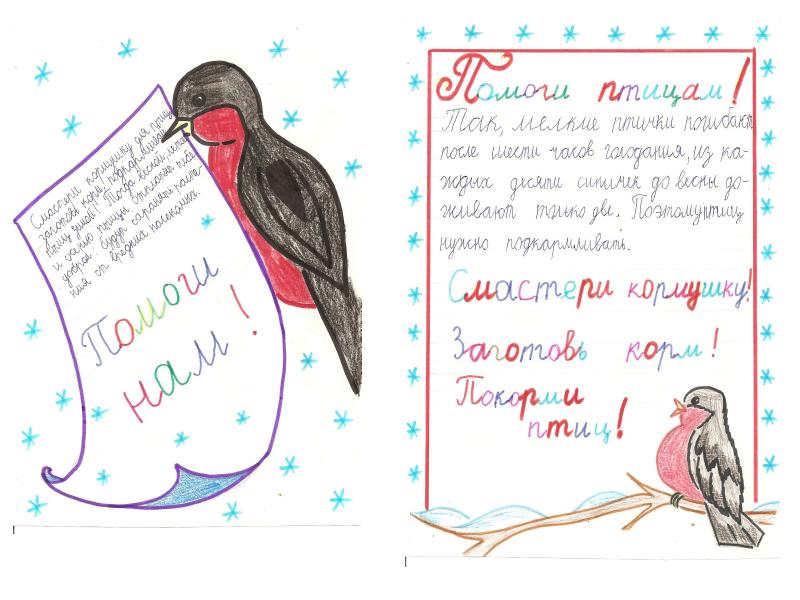 Смастери кормушку для птиц,
заготовь корм, подкармливай
птиц зимой! Тогда весной, летом
и осенью птицы отплатят тебе
добром - будут охранять расте-
ния от вредных насекомых.
Помоги
нам!
Помоги птицам!
Так, мелкие птички погибают
после шести часов голодания, из ка-
ждых десяти синичек до весны до-
живают только две. Поэтому птиц
нужно подкармливать.
Смастери кормушку!
Заготовь корм!
Покорми
птиц!